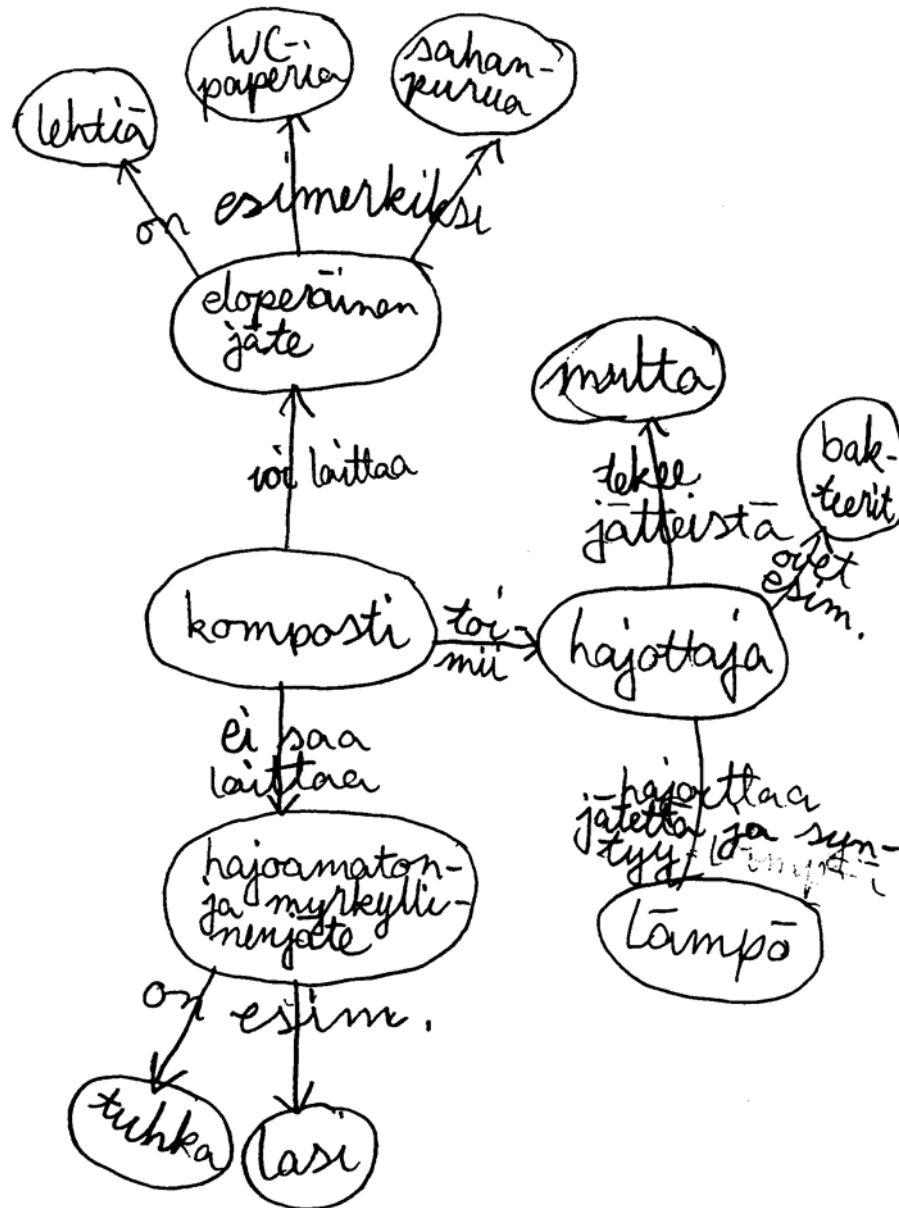 WC-
paperia
sahan-
purua
lehtiä
on esimerkiksi
eloperäinen
jäte
voi laittaa
multa
tekee
jätteistä
bak-
teerit
ovet
esim.
komposti
toi-
mii
hajottaja
ei saa
laittaa
hajoittaa
jätettä ja syn-
tyy lämpöä
hajoamaton-
ja myrkylli-
nenjäte
lämpö
on esim.
tuhka
lasi